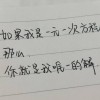 如果我是一元一次方程
那么
你就是我唯一的解